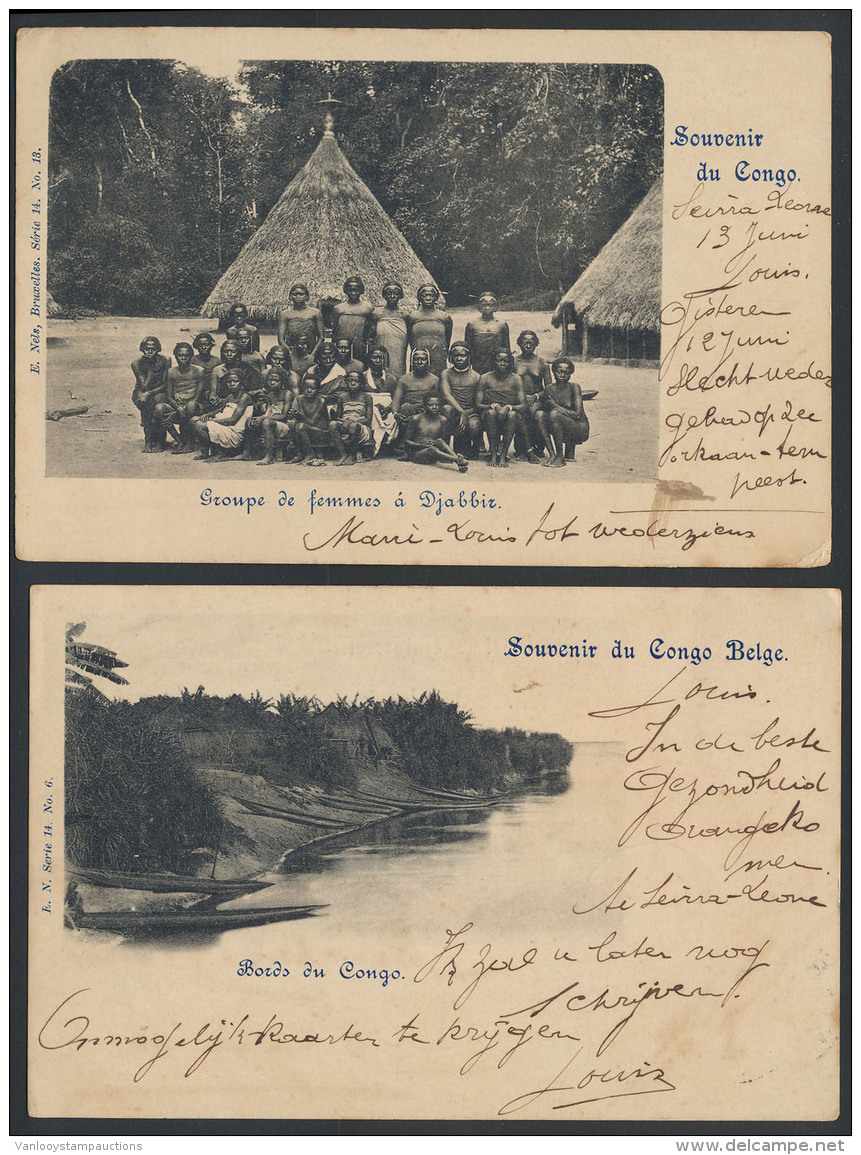 E. Nels, Bruxelles. Série 14. No. 13.
Souvenir
du Congo.
Seirra-Leone
13 Juni
Louis.
Gisteren
12 Juni
slecht weder
gehad op Zee
orkaan-tem
peest.
Groupe de femmes á Djabbir.
Marri-Louis tot wederziens
E. N. Serie 14. No. 6.
Souvenir du Congo Belge.
Louis.
In de beste
Gezondheid
aangeko
men
Te Seirra-Leone
Bords du Congo.
Ik zal u later nog
Schrijven.
Onmogelijk kaarten te krijgen
Louis
Vanlooystampauctions
delcampe.net